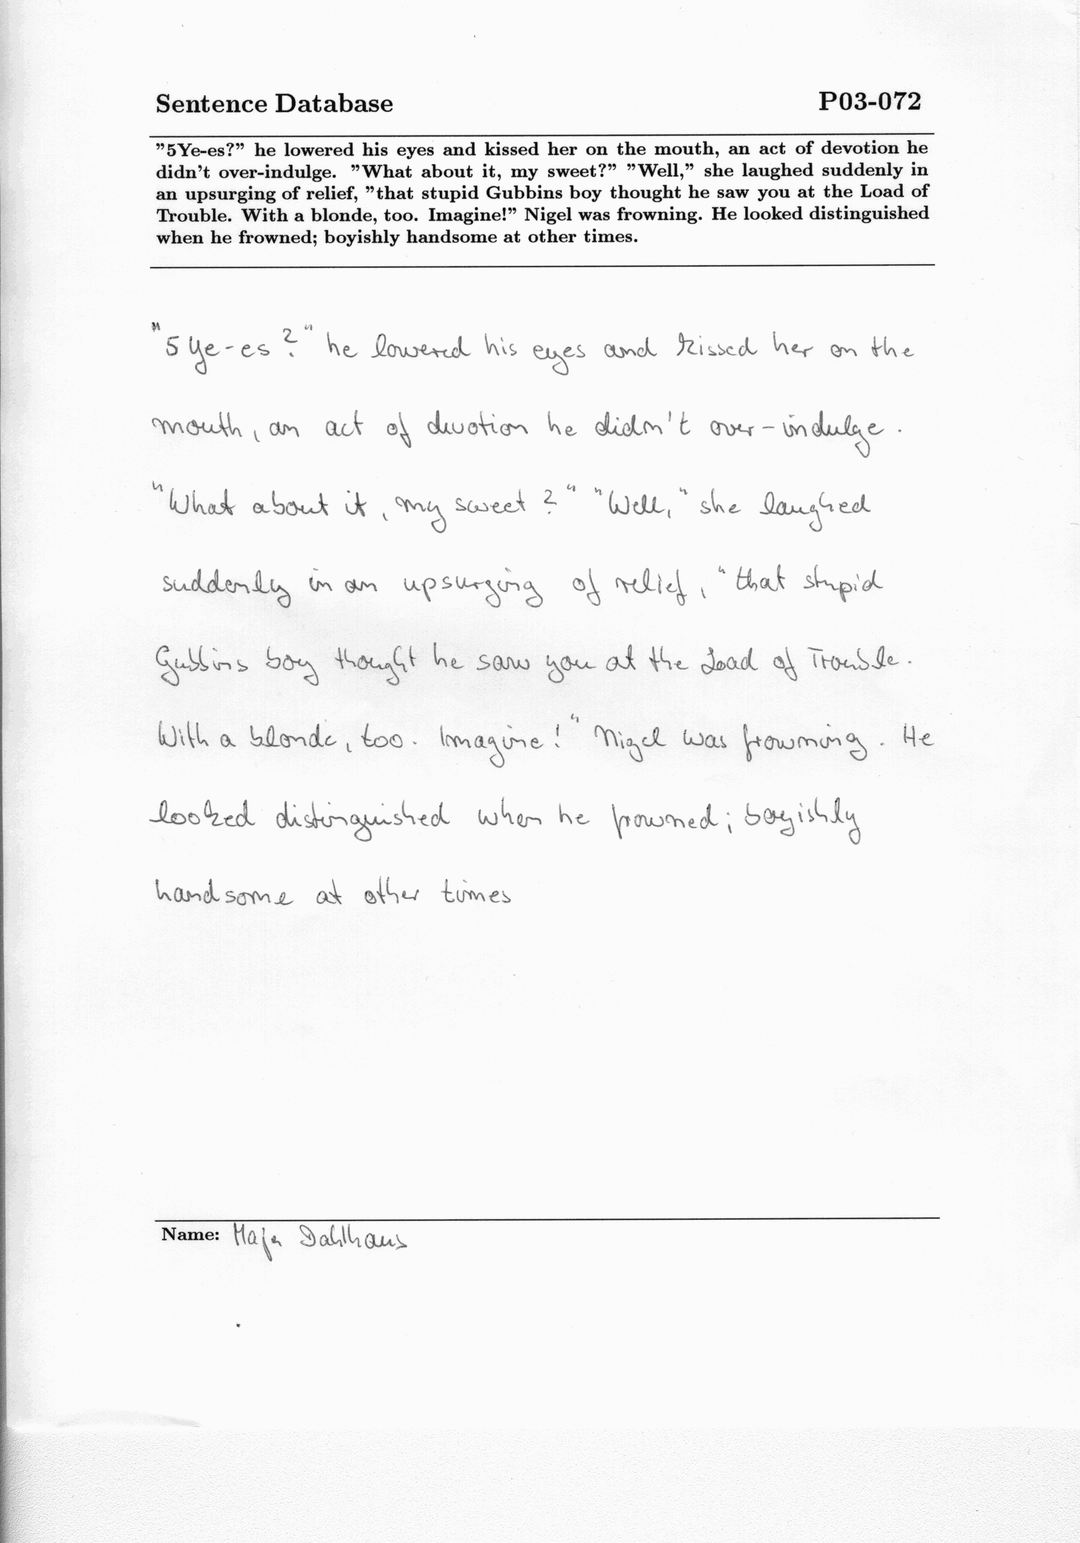 Sentence Database P03-072
"5Ye-es?" he lowered his eyes and kissed her on the mouth, an act of devotion he
didn't over-indulge. "What about it, my sweet?" "Well," she laughed suddenly in
an upsurging of relief, "that stupid Gubbins boy thought he saw you at the Load of
Trouble. With a blonde, too. Imagine!" Nigel was frowning. He looked distinguished
when he frowned; boyishly handsome at other times.
"5 Ye-es?" he lowered his eyes and kissed her on the
mouth, an act of devotion he didn't over-indulge.
"What about it, my sweet?" "Well," she laughed
suddenly in an upsurging of relief, "that stupid
Gubbins boy thought he saw you at the Load of Trouble.
With a blonde, too. Imagine!" Nigel was frowning. He
looked distinguished when he frowned; boyishly
handsome at other times
Name: Maja Dahlhaus